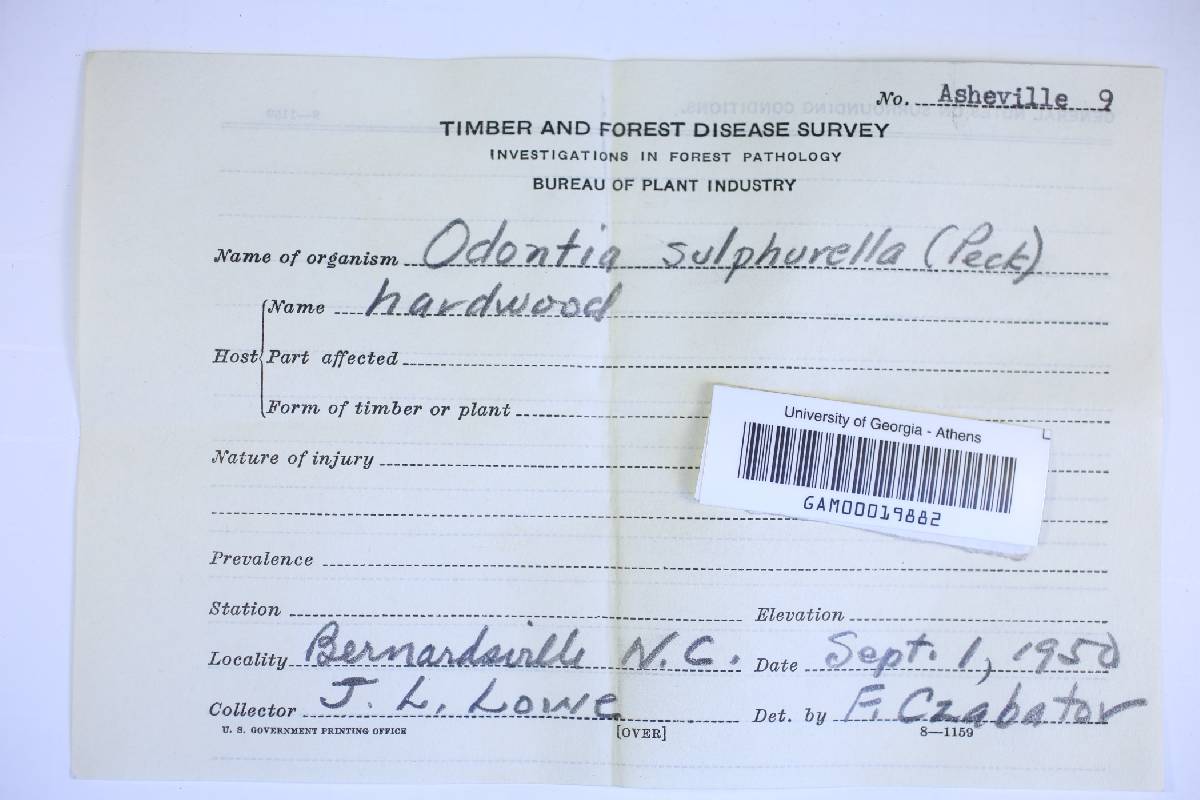 No. Asheville 9
TIMBER AND FOREST DISEASE SURVEY
INVESTIGATIONS IN FOREST PATHOLOGY
BUREAU OF PLANT INDUSTRY
Name of organism Odontia sulphurella (Peck)
Name hardwood
Host Part affected
Form of timber or plant
University of Georgia - Athens
GAM00019882
Nature of injury
Prevalence
Station Elevation
Locality Bernardsville N.C. Date Sept. 1, 1950
Collector J. L. Lowe Det. by F. Czabator
U. S. GOVERNMENT PRINTING OFFICE [OVER] 8—1159